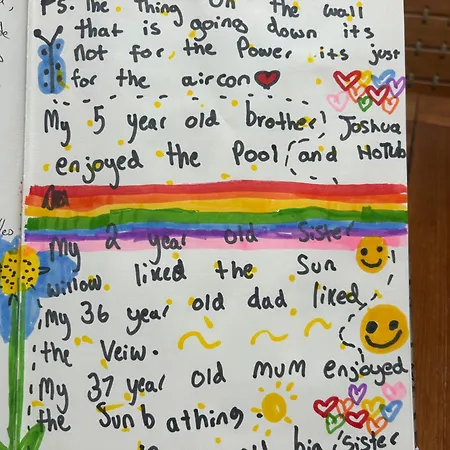 Ps. The Thing on the wall
that is going down its
Not for the Power its just
for the aircon
My 5 year old brother Joshua
enjoyed the Pool and HoTub
My 2 year old Sister
willow liked the Sun
My 36 year old dad liked
the Veiw.
My 37 year old mum enjoyed
the Sun bathing.
big Sister